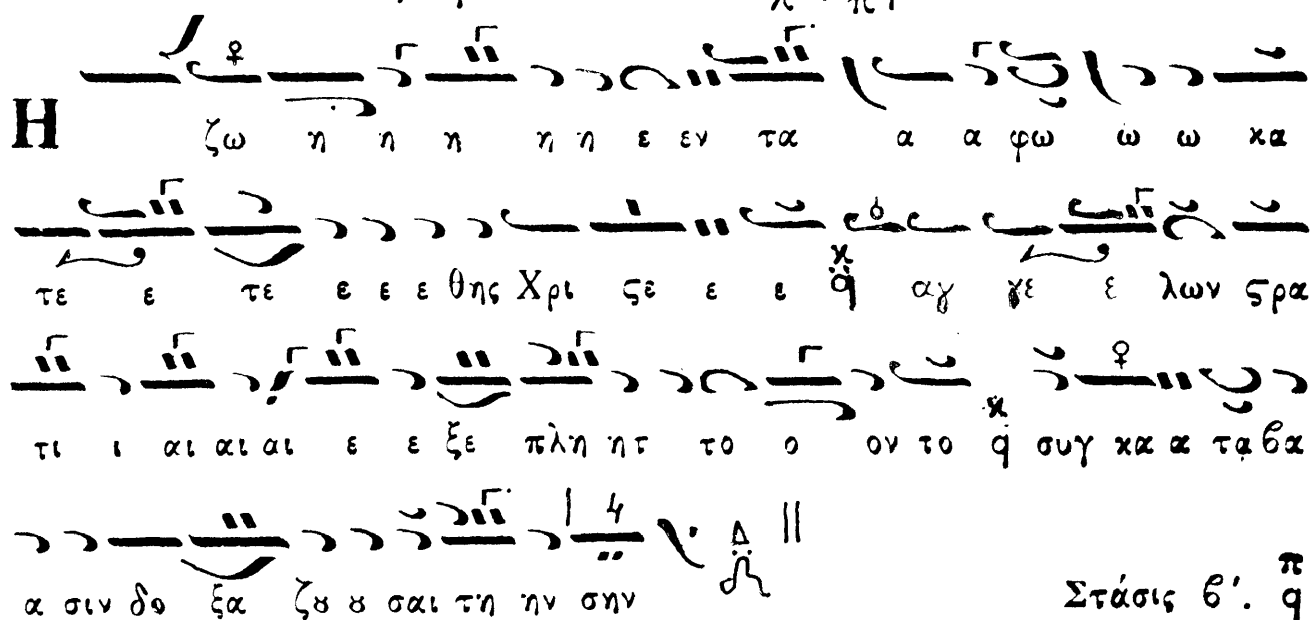 Η ζω η η η η η ε εν τα α α φω ω ω κα
τε ε τε ε ε ε θης Χρι ϛε ε ε αγ γε ε λων ϛρα
τι ι αι αι αι ε ε ξε πλη ητ το ο ον το συγ κα α τα βα
α σιν δο ξα ζȣ ȣ σαι τη ην σην
Στάσις ϐ'.